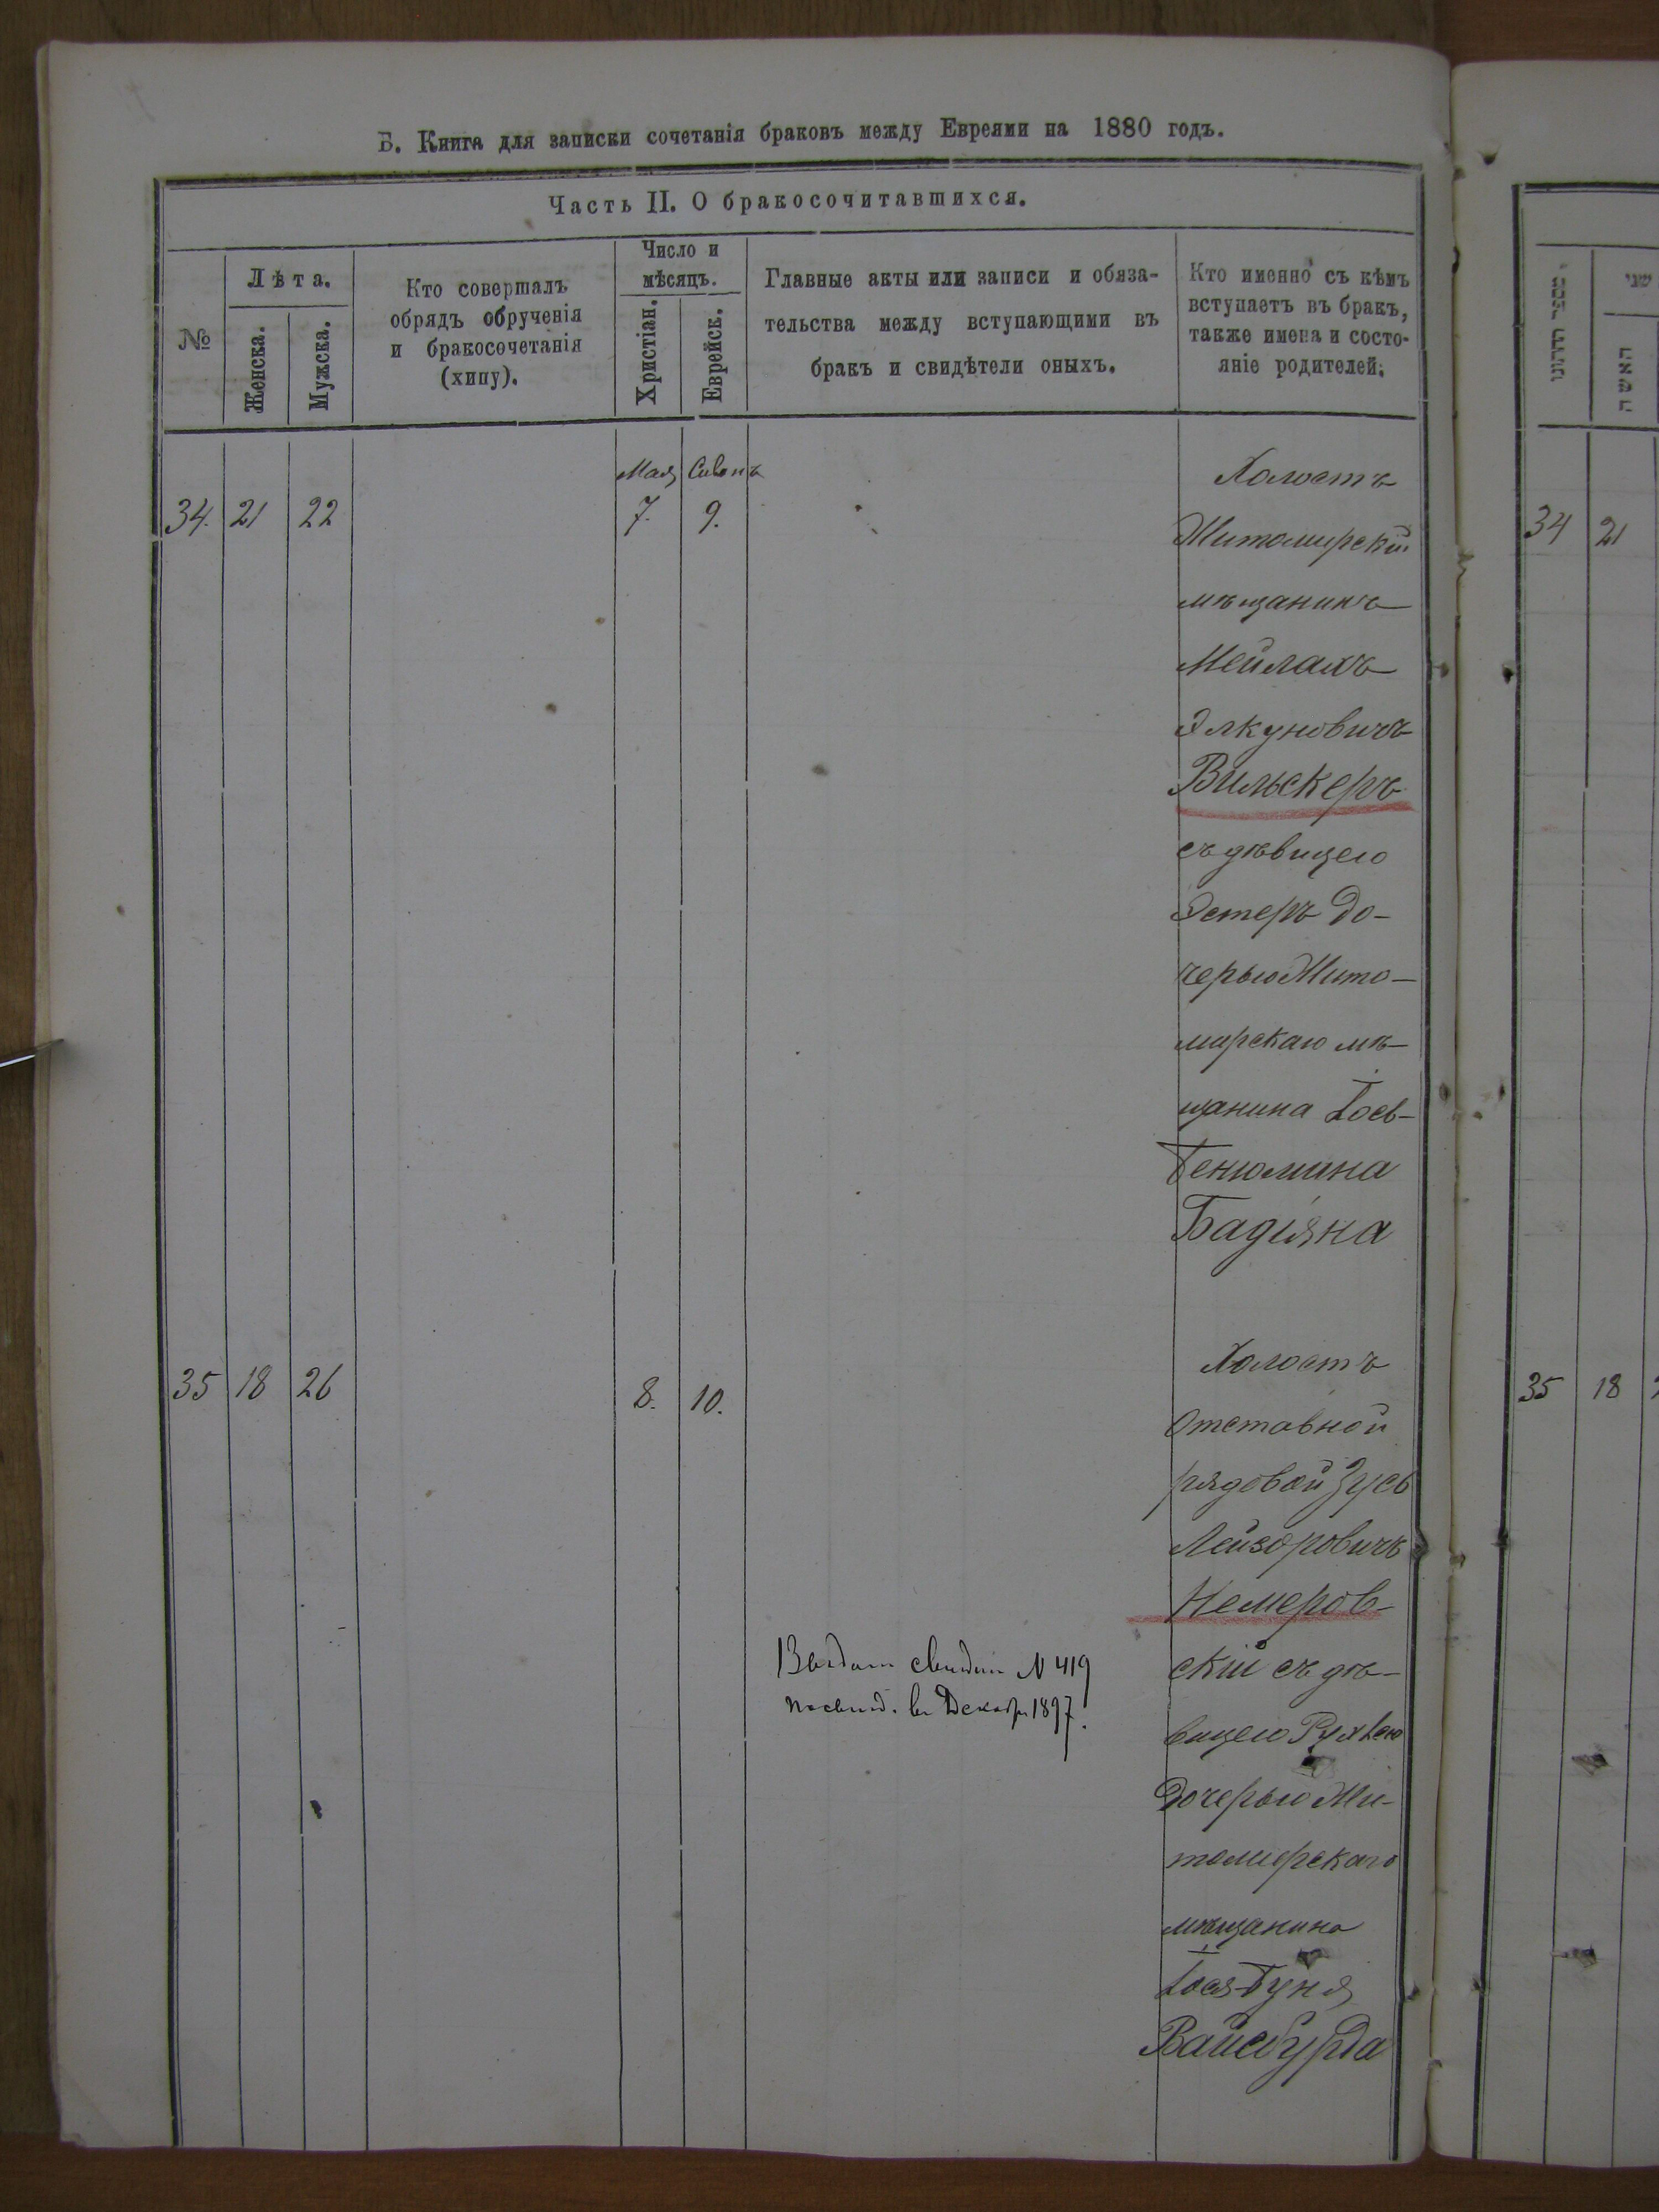 Б. Книга для записки сочетанія браковъ между Евреями на 1880 годъ.
Часть II. О бракосочитавшихся.
№
Лѣта.
Женска.
Мужска.
Кто совершалъ
обрядъ обрученія
и бракосочетанія
(хипу).
Число и
мѣсяцъ.
Христіан.
Еврейск.
Главные акты или записи и обяза-
тельства между вступающими въ
бракъ и свидѣтели оныхъ.
Кто именно съ кѣмъ
вступаетъ въ бракъ,
также имена и состо-
яніе родителей.
34. 21 22
Мая Сивонъ
7. 9.
Холостъ
Житомирскій
мѣщанинъ
Мейлахъ
Элкуновичъ
Вильскеръ
съ дѣвицею
Эстеръ до-
черью Жито-
мирскаго мѣ-
щанина Іось-
Бенюмина
Бадіяна
35 18 26
8. 10.
Холостъ
Отставной
рядовой Зусь
Лейзоровичъ
Немеров-
скій съ дѣ-
вицею Рухлею
Дочерью Жи-
томирскаго
мѣщанина
Іося-Буня
Вайсбурда
Выдан свидет N 419
в Декабр 1897.
מספר הדרוני
שני
האשה
34 21
35 18